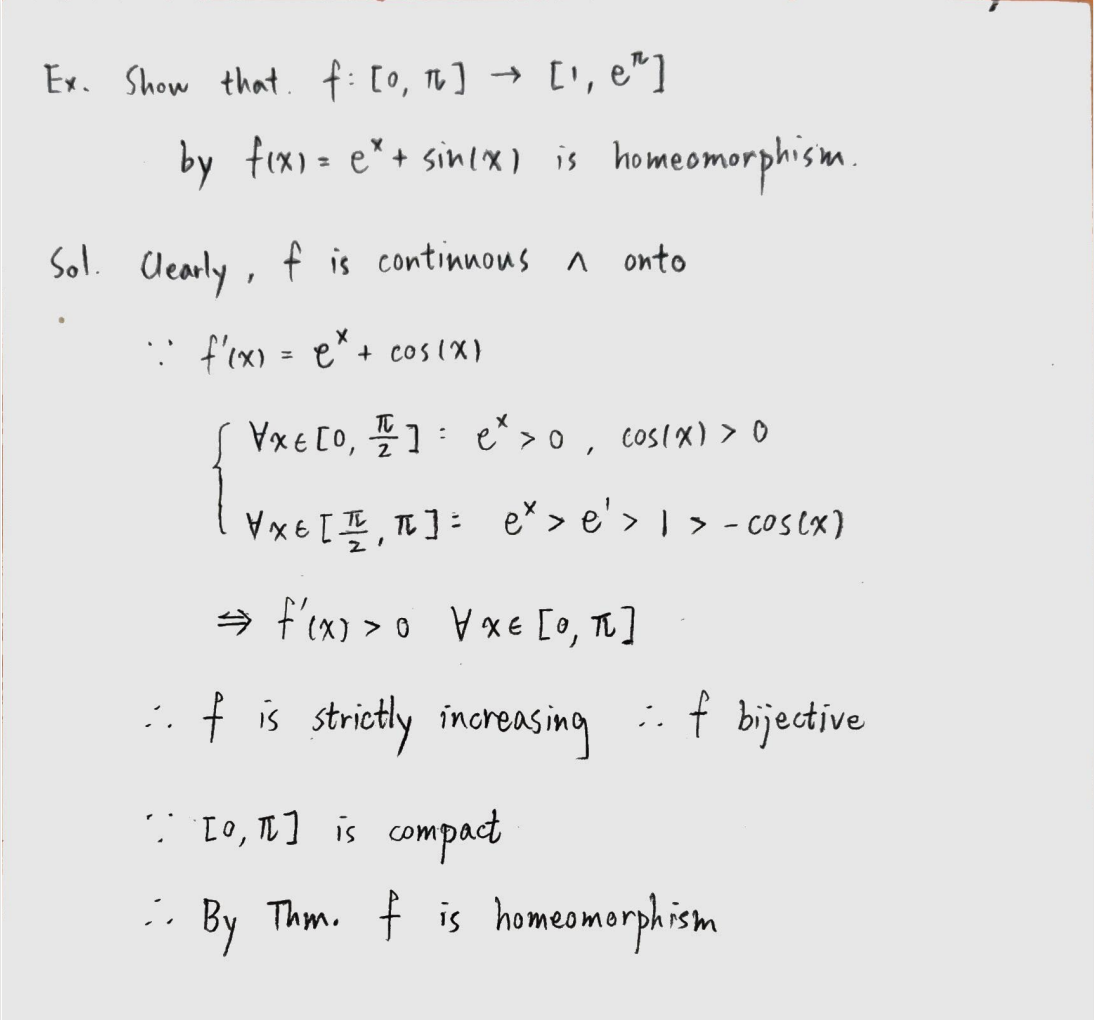 Ex. Show that. f: [0, π] → [1, e^π]
by f(x) = e^x + sin(x) is homeomorphism.
Sol. Clearly, f is continuous ∧ onto
∵ f'(x) = e^x + cos(x)
∀x∈[0, π/2] : e^x > 0, cos(x) > 0
∀x∈[π/2, π] : e^x > e^1 > 1 > -cos(x)
⇒ f'(x) > 0 ∀x∈[0, π]
∴ f is strictly increasing ∴ f bijective
∵ [0, π] is compact
∴ By Thm. f is homeomorphism